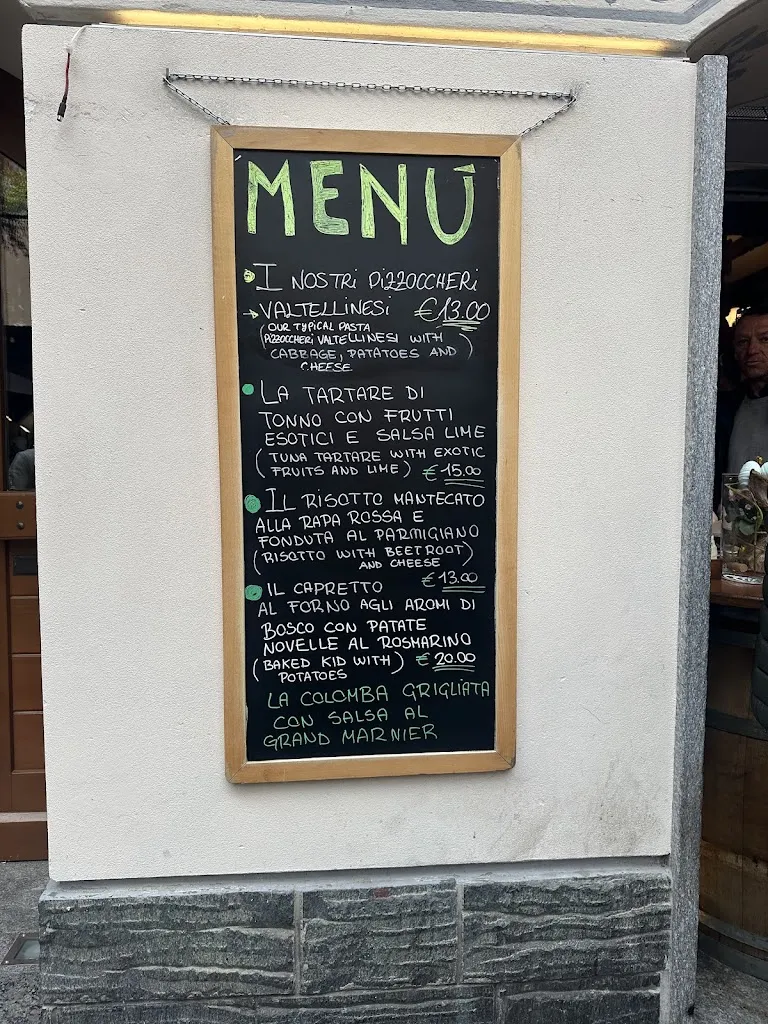 MENÙ
I NOSTRI PIZZOCCHERI
VALTELLINESI €13.00
(OUR TYPICAL PASTA
PIZZOCCHERI VALTELLINESI WITH
CABBAGE, PATATOES AND
CHEESE)
LA TARTARE DI
TONNO CON FRUTTI
ESOTICI E SALSA LIME
(TUNA TARTARE WITH EXOTIC
FRUITS AND LIME) €15.00
IL RISOTTO MANTECATO
ALLA RAPA ROSSA E
FONDUTA AL PARMIGIANO
(RISOTTO WITH BEETROOT)
AND CHEESE
€13.00
IL CAPRETTO
AL FORNO AGLI AROMI DI
BOSCO CON PATATE
NOVELLE AL ROSMARINO
(BAKED KID WITH) €20.00
POTATOES
LA COLOMBA GRIGLIATA
CON SALSA AL
GRAND MARNIER